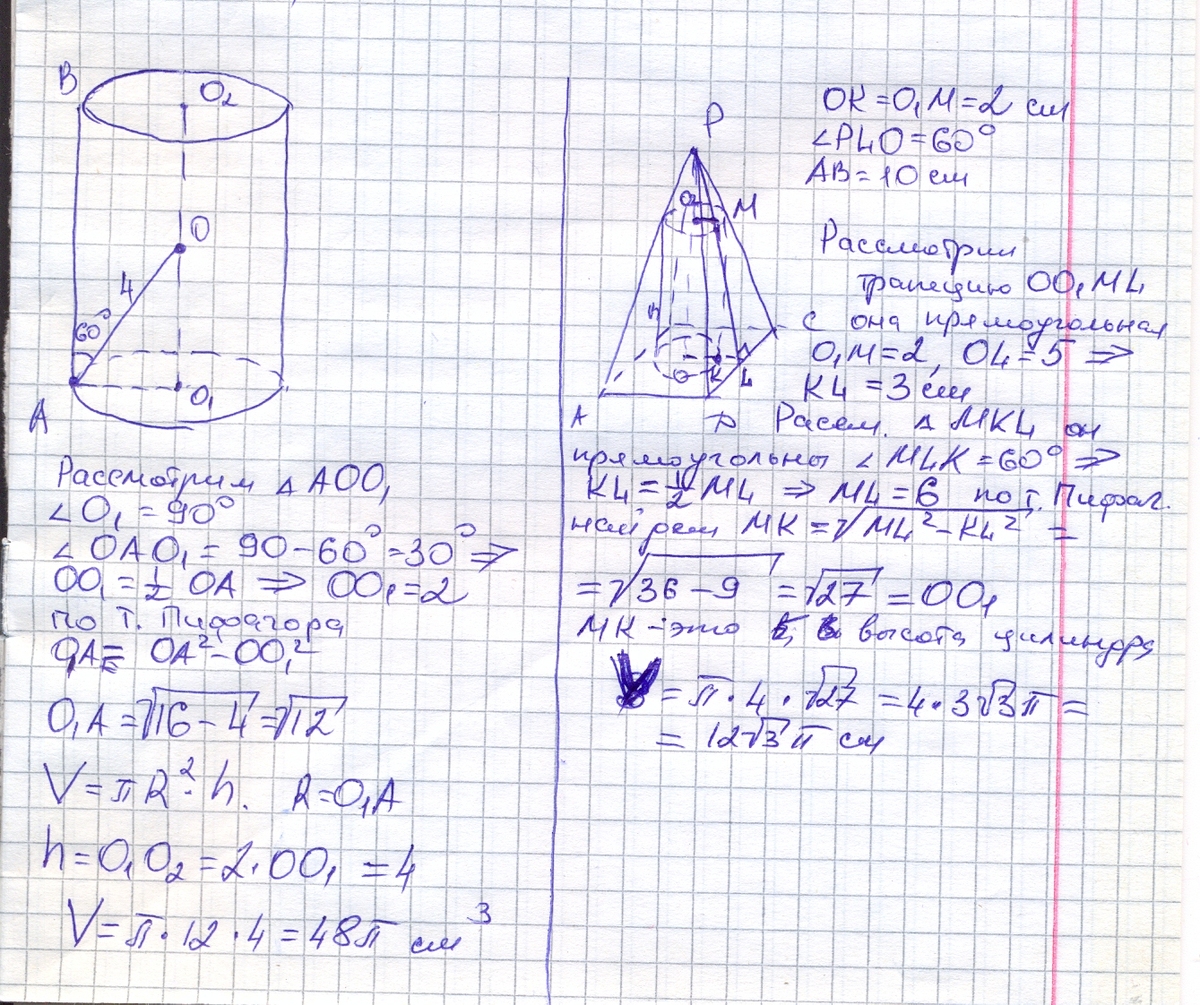 B
O₂
O
4
60°
O₁
A
Рассмотрим △ AOO₁
∠O₁ = 90°
∠OAO₁ = 90 – 60° = 30° ⇒
OO₁ = ½ OA ⇒ OO₁ = 2
по Т. Пифагора
O₁A = OA² – OO₁²
O₁A = √16 – 4 = √12
V = πR² · h. R = O₁A
h = O₁O₂ = 2 · OO₁ = 4
V = π · 12 · 4 = 48π см³
P
M
C
O
K
L
A
D
OK = O₁M = 2 см
∠PLO = 60°
AB = 10 см
Рассмотрим
трапецию OO₁ML
она прямоугольная
O₁M = 2, OL = 5 ⇒
KL = 3 см
Рассм. △ MKL он
прямоугольны ∠MLK = 60° ⇒
KL = ½ ML ⇒ ML = 6 по т. Пифаг.
найдем MK = √ML² – KL² =
= √36 – 9 = √27 = OO₁
MK – это высота цилиндра
V = π · 4 · √27 = 4 · 3√3 π =
= 12√3 π см